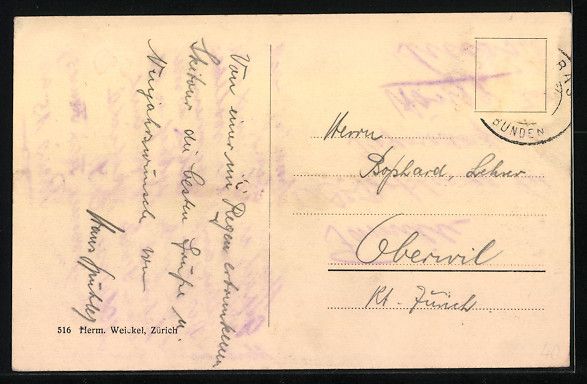 Von einer im Regen ertrunkenen
Skitour die besten Grüße u.
Neujahrswünsche von
Hans
516 Herm. Weickel, Zürich
BÜNDEN
Herrn
Boßhard, Lehrer
Oberwil
Kt. Zürich